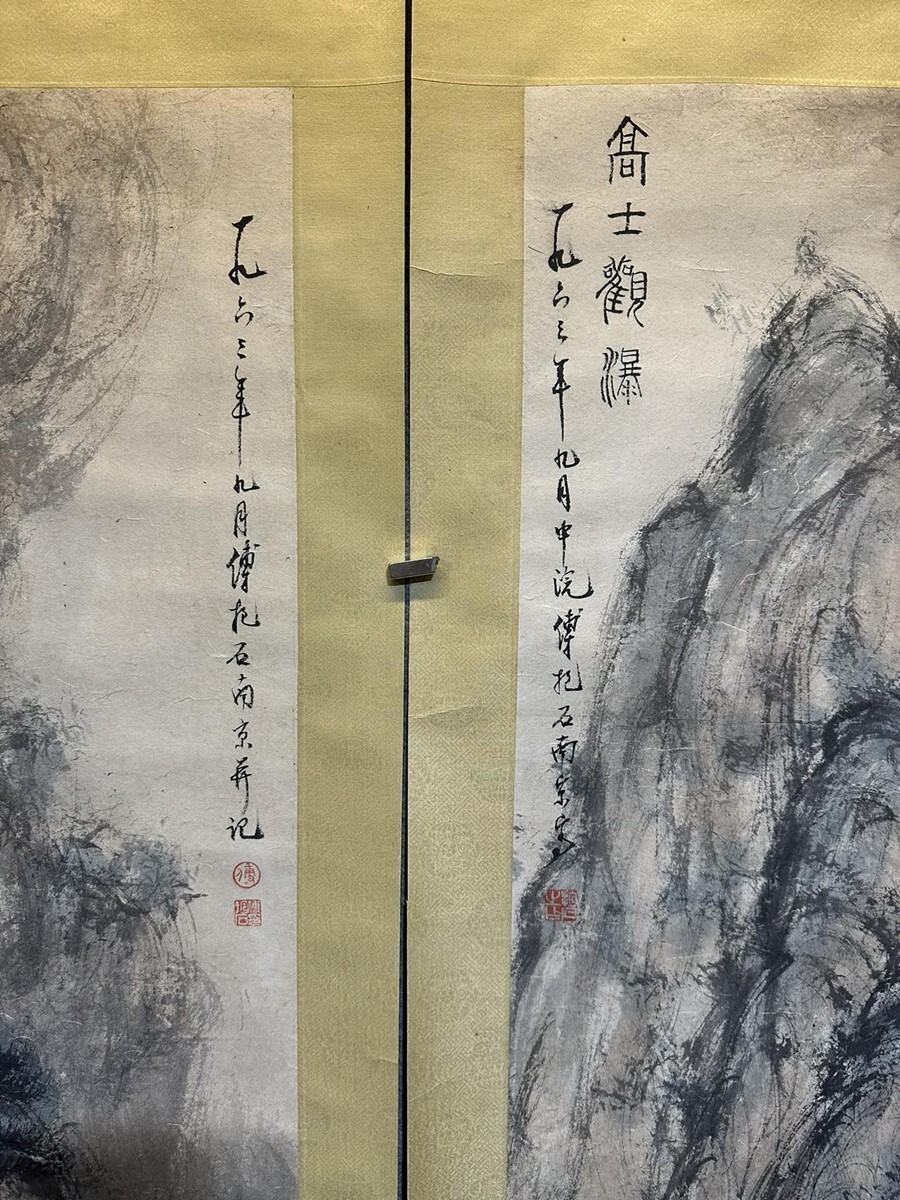 高士觀瀑
一九六三年九月中浣傅抱石南京寫
一九六三年九月傅抱石南京并记
傅